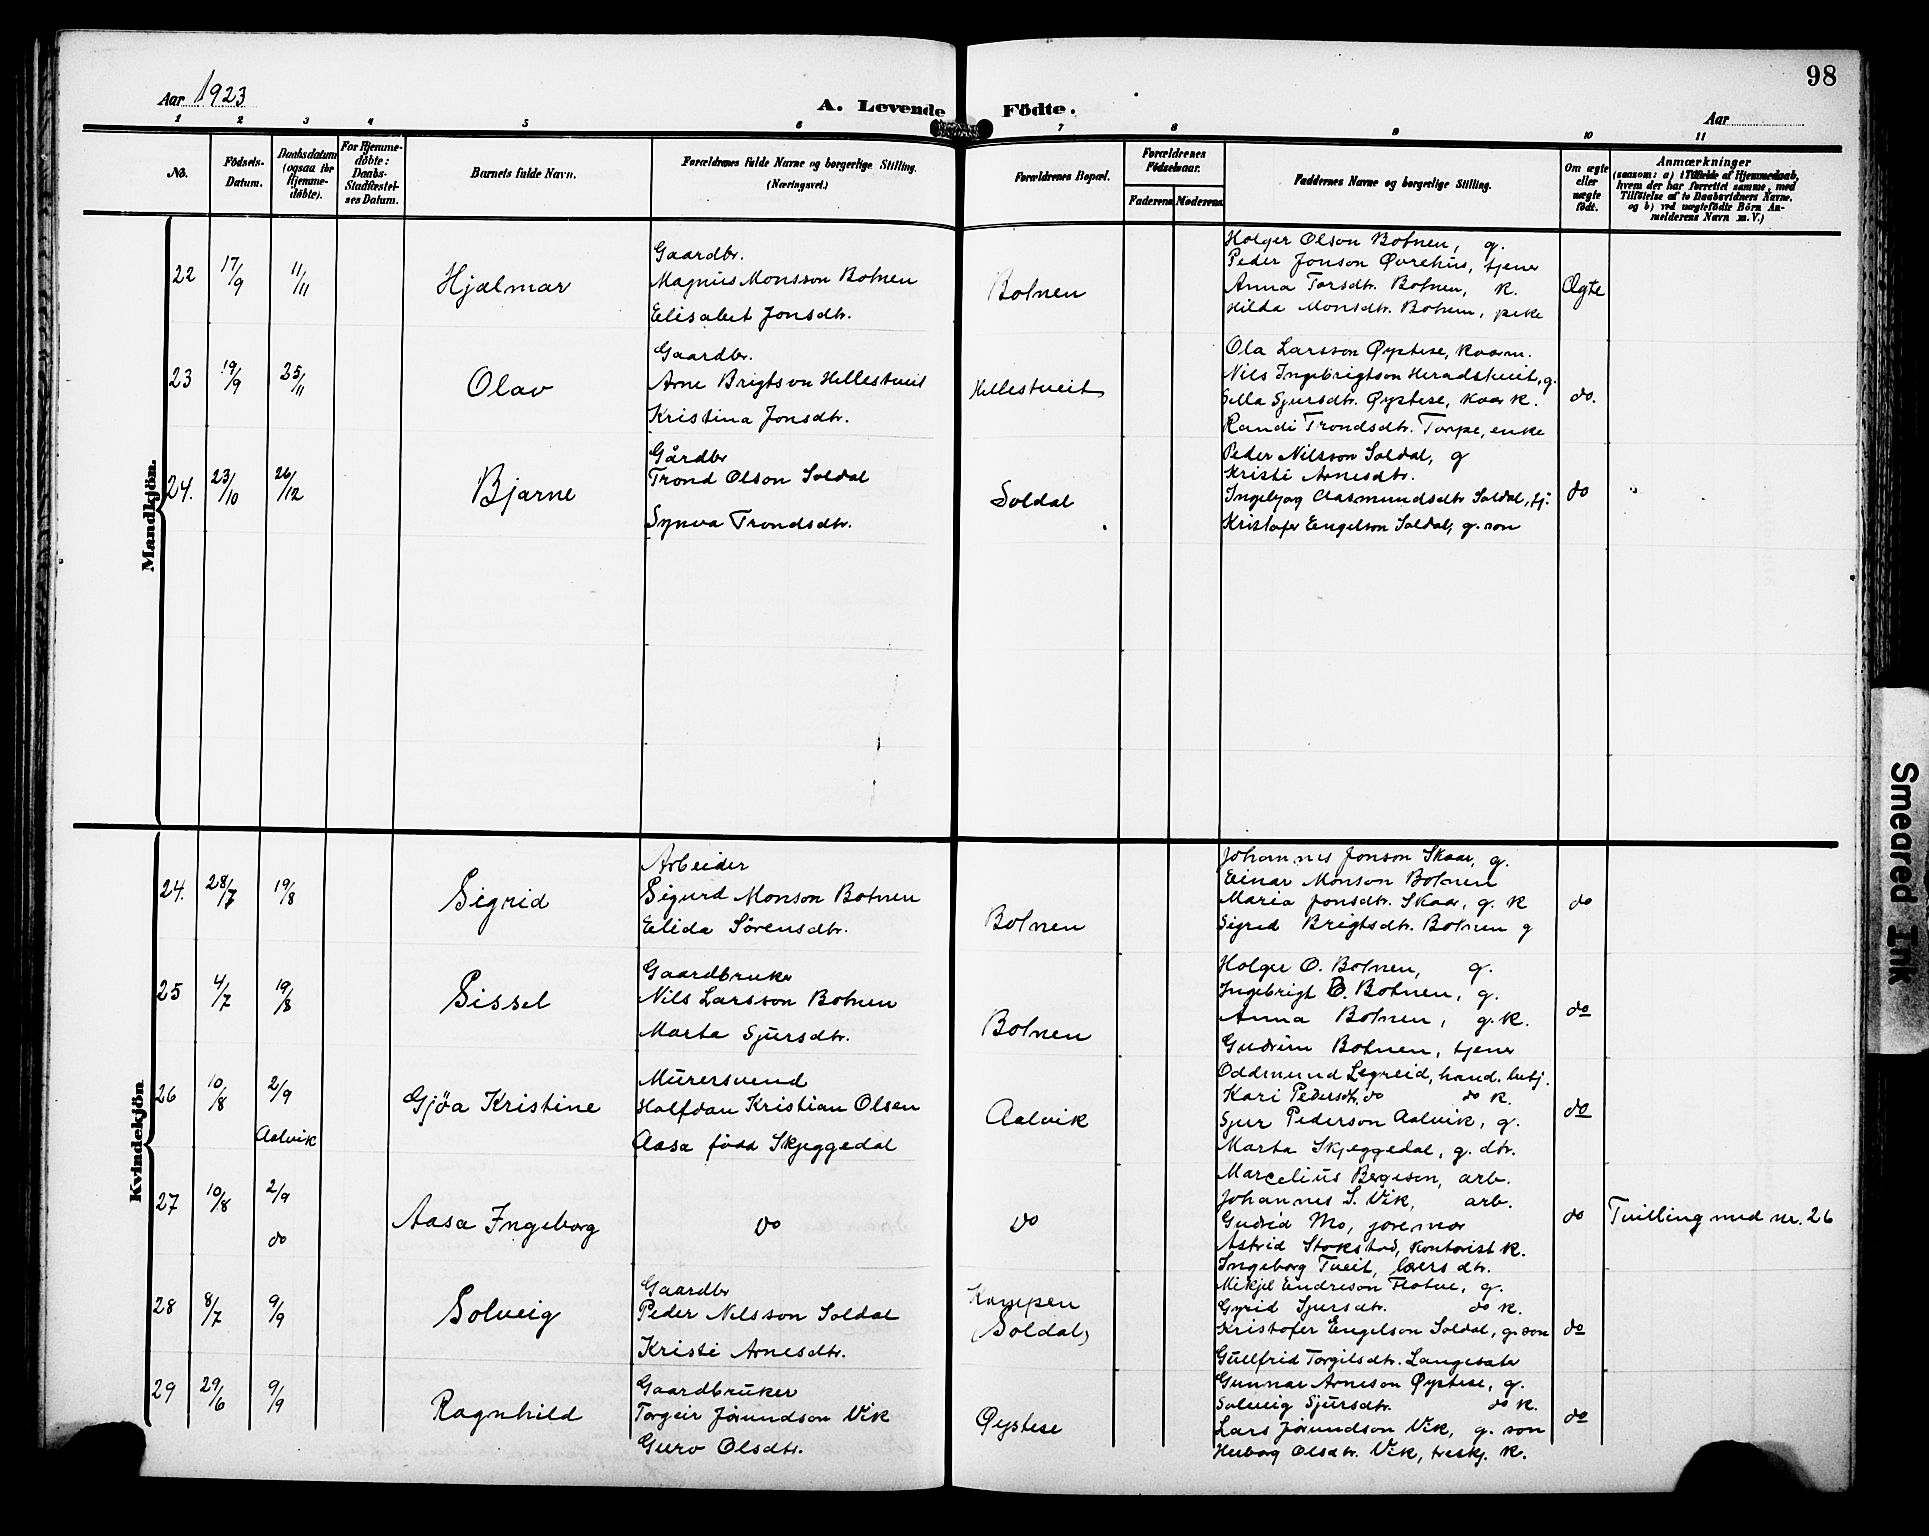 98
Aar 1923
A. Levende Födte.
Aar
1 2 3 4 5 6 7 8 9 10 11
No.
Födsels-Datum.
Daabsdatum (ogsaa for Hjemme-döbte).
For Hjemme-döbte: Daabs-Stadfæstel-ses Datum.
Barnets fulde Navn.
Forældrenes fulde Navne og borgerlige Stilling. (Næringsvei.)
Forældrenes Bopæl.
Forældrenes Födselsaar.
Faderens Moderens
Faddernes Navne og borgerlige Stilling.
Om ægte eller uægte födt.
Anmærkninger
(saasom: a) i Tilfælde af Hjemmedaab,
hvem der har forrettet samme, med
Tilföielse af to Daabsvidners Navne.
og b) ved uægtefödte Börn An-
melderens Navn m. V.)
Mandkjön.
22 17/9 11/11 Hjalmar
Gaardbr.
Magnus Monsson Botnen
Elisabet Jonsdtr.
Botnen
Holger Olson Botnen, g.
Peder Jonson Øvrehus, tjener
Anna Torsdtr. Botnen, k.
Hilda Monsdtr. Botnen, pike
Ægte
23 19/9 25/11 Olav
Gaardbr.
Arne Brigtson Hellestveit
Kristina Jonsdtr.
Hellestveit
Ola Larsson Øystese, kaarm.
Nils Ingebrigtson Heradstveit, g.
Sella Sjursdtr. Øystese, kaar k.
Randi Trondsdtr. Torpe, enke
do.
24. 23/10 26/12 Bjarne
Gårdbr
Trond Olson Soldal
Synva Trondsdtr.
Soldal
Peder Nilsson Soldal, g
Kristi Arnesdtr.
Ingebjørg Aasmundsdtr Soldal, tj.
Kristofer Engelson Soldal, g. son
do
Kvindekjön
24. 28/7 19/8 Sigrid
Arbeider
Sigurd Monson Botnen
Elida Sörensdtr.
Botnen
Johannes Jonson Skaar, g.
Einar Monson Botnen
Maria Jonsdtr. Skaar, g. k
Sigrid Brigtsdtr. Botnen g
do
25 4/7 19/8 Sissel
Gaardbruker
Nils Larsson Botnen
Marta Sjursdtr.
Botnen
Holger O. Botnen, g.
Ingebrigt B. Botnen, g.
Anna Botnen, g. k.
Gudrun Botnen, tjener
do
26 10/8 2/9 Aalvik Gjøa Kristine
Murersvend
Halfdan Kristian Olsen
Aasa född Skjeggedal
Aalvik
Oddmund Legreid, hand. betj.
Kari Pedersdtr. do do k.
Sjur Pederson Aalvik, g.
Marta Skjeggedal, g. dtr.
do
27 10/8 2/9 do Aasa Ingeborg
do
do
Marcelius Bergesen, arb.
Johannes S. Vik, arb.
Gudrid Mo, joremor
Astrid Stokstad, kontorist k.
Ingeborg Tveit, lærs dtr.
do
Tvilling med nr. 26
28 8/7 9/9 Solveig
Gaardbr
Peder Nilsson Soldal
Kristi Arnesdtr.
Kampen
(Soldal)
Mikjel Endreson Flotve, g.
Gyrid Sjursdtr. do k.
Kristofer Engelson Soldal, g. son
Gullfrid Torgilsdtr. Langesæter
do
29 29/6 9/9 Ragnhild
Gaardbruker
Torgeir Jörundson Vik
Guro Olsdtr.
Øystese
Gunnar Arneson Øystese, g.
Solveig Sjursdtr. do k.
Lars Jörundson Vik, g. son
Herborg Olsdtr. Vik, treskj. k.
do
Smeared Ink